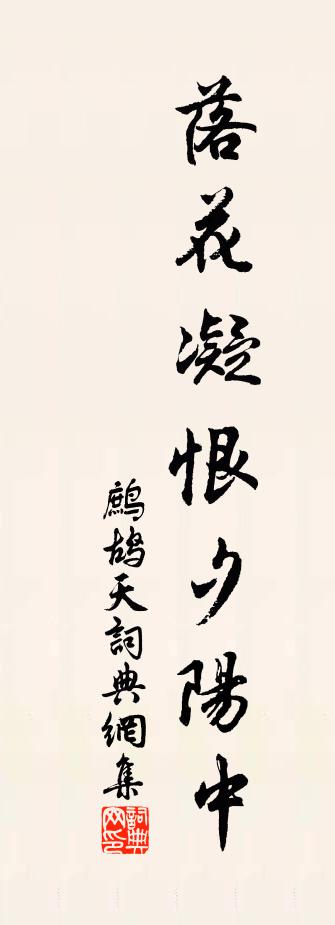 落花凝恨夕陽中
鷓鴣天詞典網集
詞典
网印